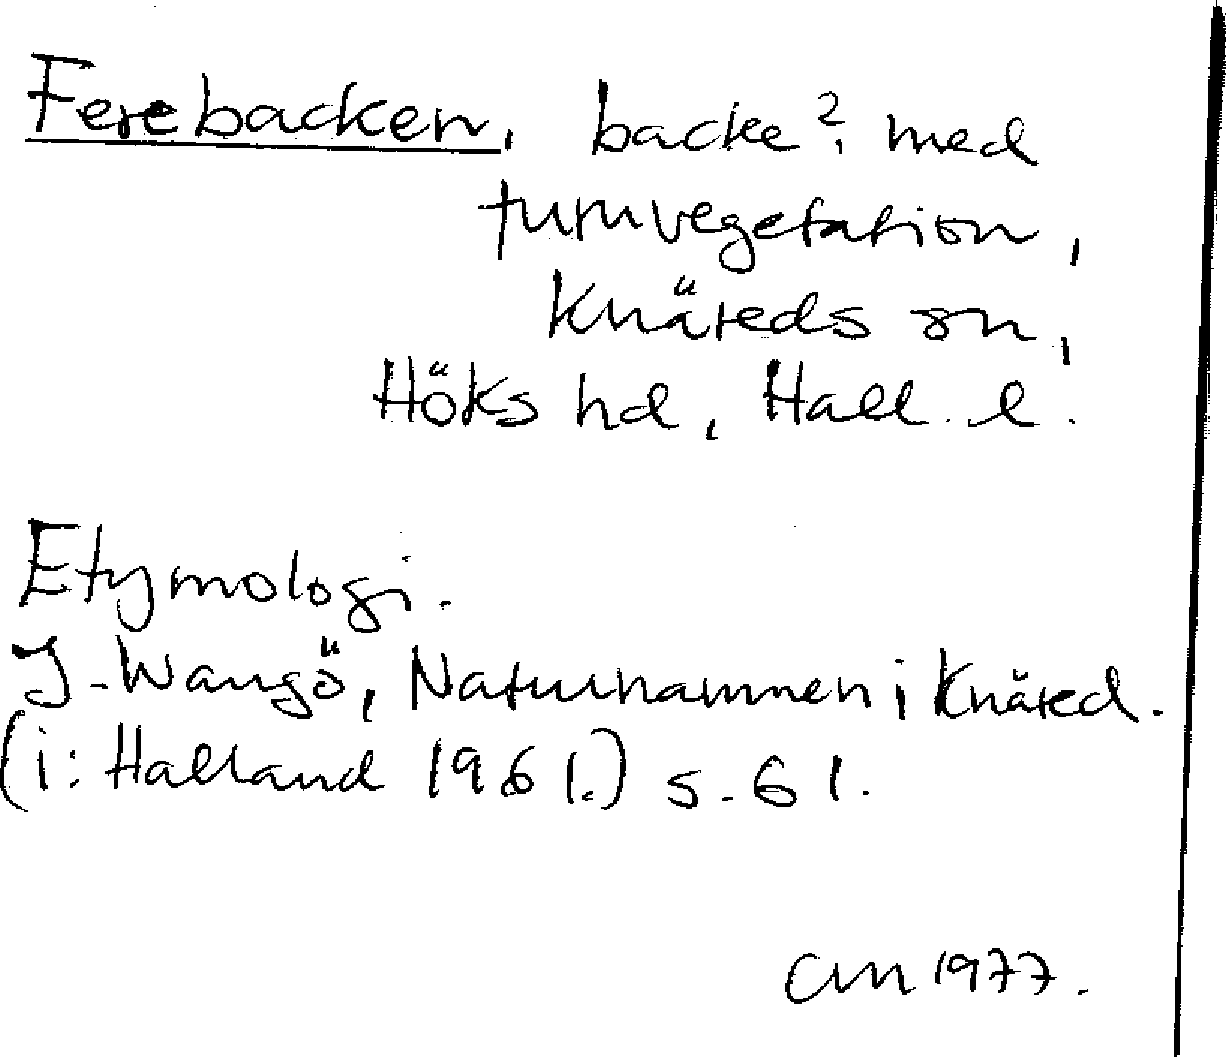 Ferebacken, backe? med
turnvegetation,
Knäreds sn,
Höks hd, Hall. l.
Etymologi.
J. Wangö, Naturnamnen i Knäred.
(i: Halland 1961.) s. 61.
CM 1977.